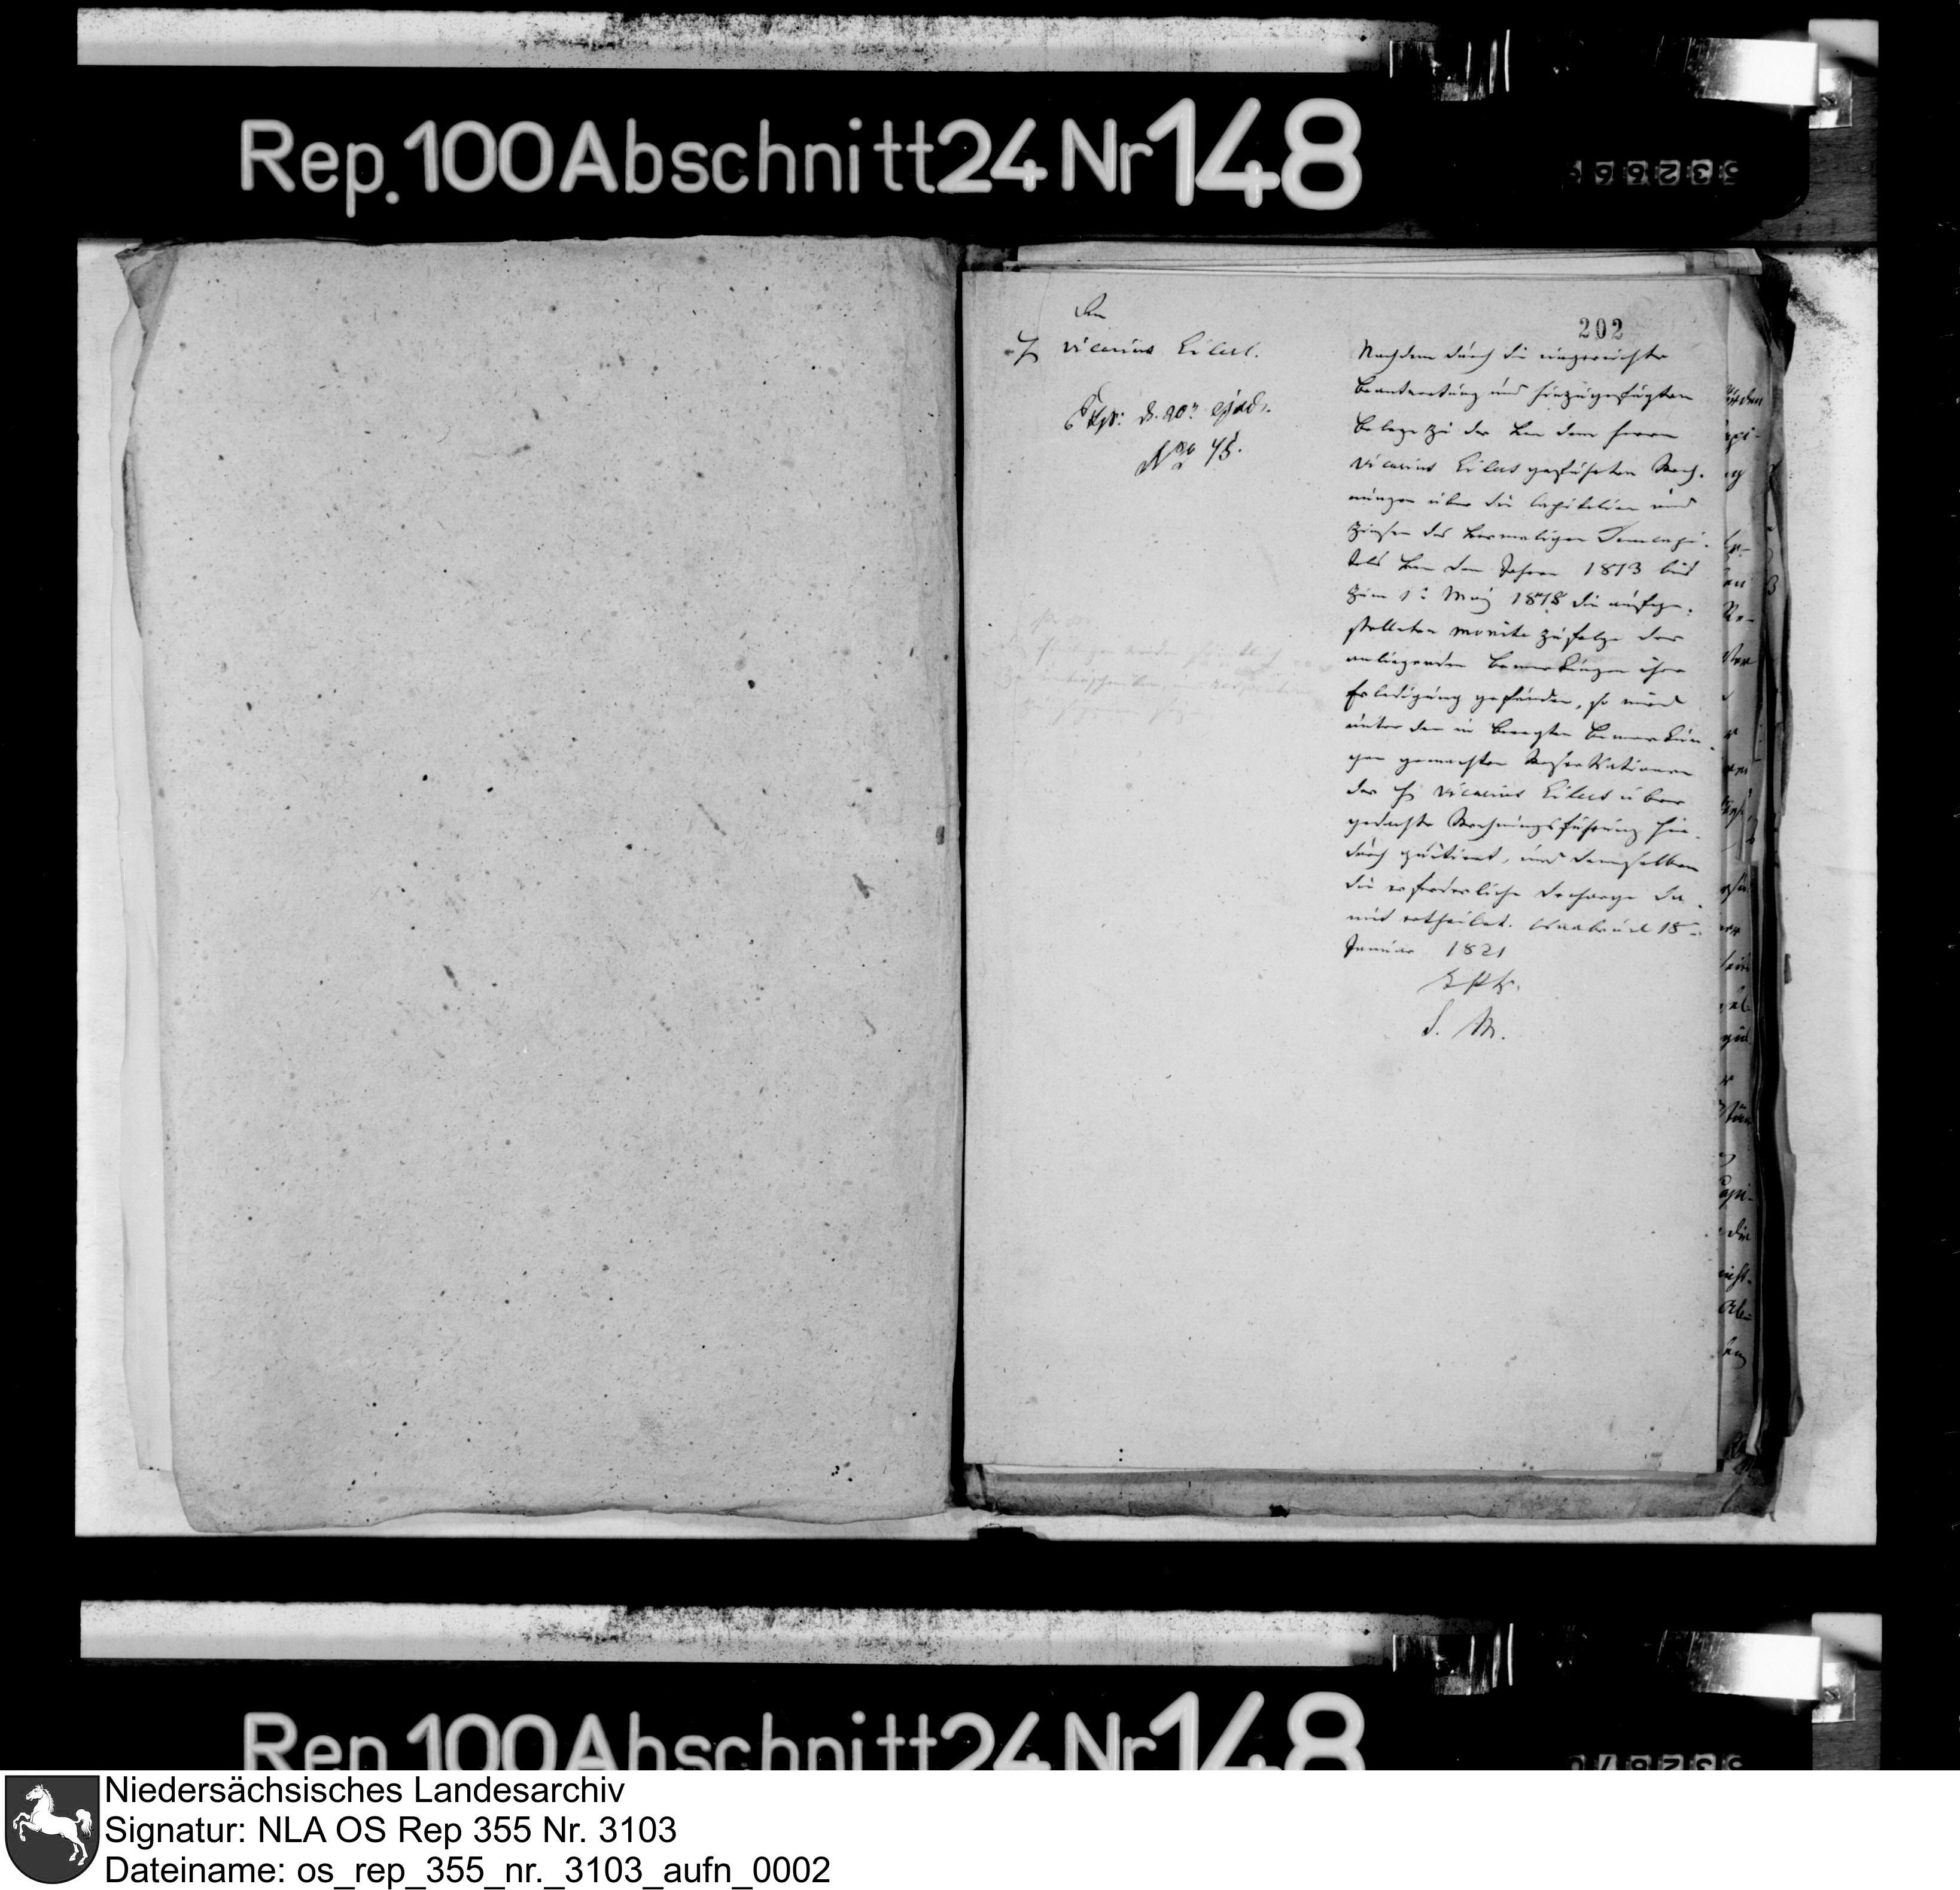 Rep.100 Abschnitt 24 Nr 148
202
An
H Vicarius Eilers.
Exp: d. 20t ejusd.
No 45.
Nachdem durch die eingereichte
Beantwortung und hinzugefügten
Belege zu der von dem Herrn
Vicarius Eilers geführten Rech-
nungen über die Capitalien und
Zinsen des vormaligen Domcapi-
tels von den Jahren 1813 bis
zum 1t May 1818 die aufge-
stellten Monita zufolge der
anliegenden Bemerkungen ihre
Erledigung gefunden, so wird
unter den in besagten Bemerkun-
gen gemachten Reservationen
der H Vicarius Eilers über
gedachte Rechnungsführung hie-
durch quitirt, und demselben
die erforderliche Decharge da-
mit ertheilet. Osnabrück 18t
Januar 1821
S. M.
Rep.100 Abschnitt 24 Nr 148
Niedersächsisches Landesarchiv
Signatur: NLA OS Rep 355 Nr. 3103
Dateiname: os_rep_355_nr._3103_aufn_0002